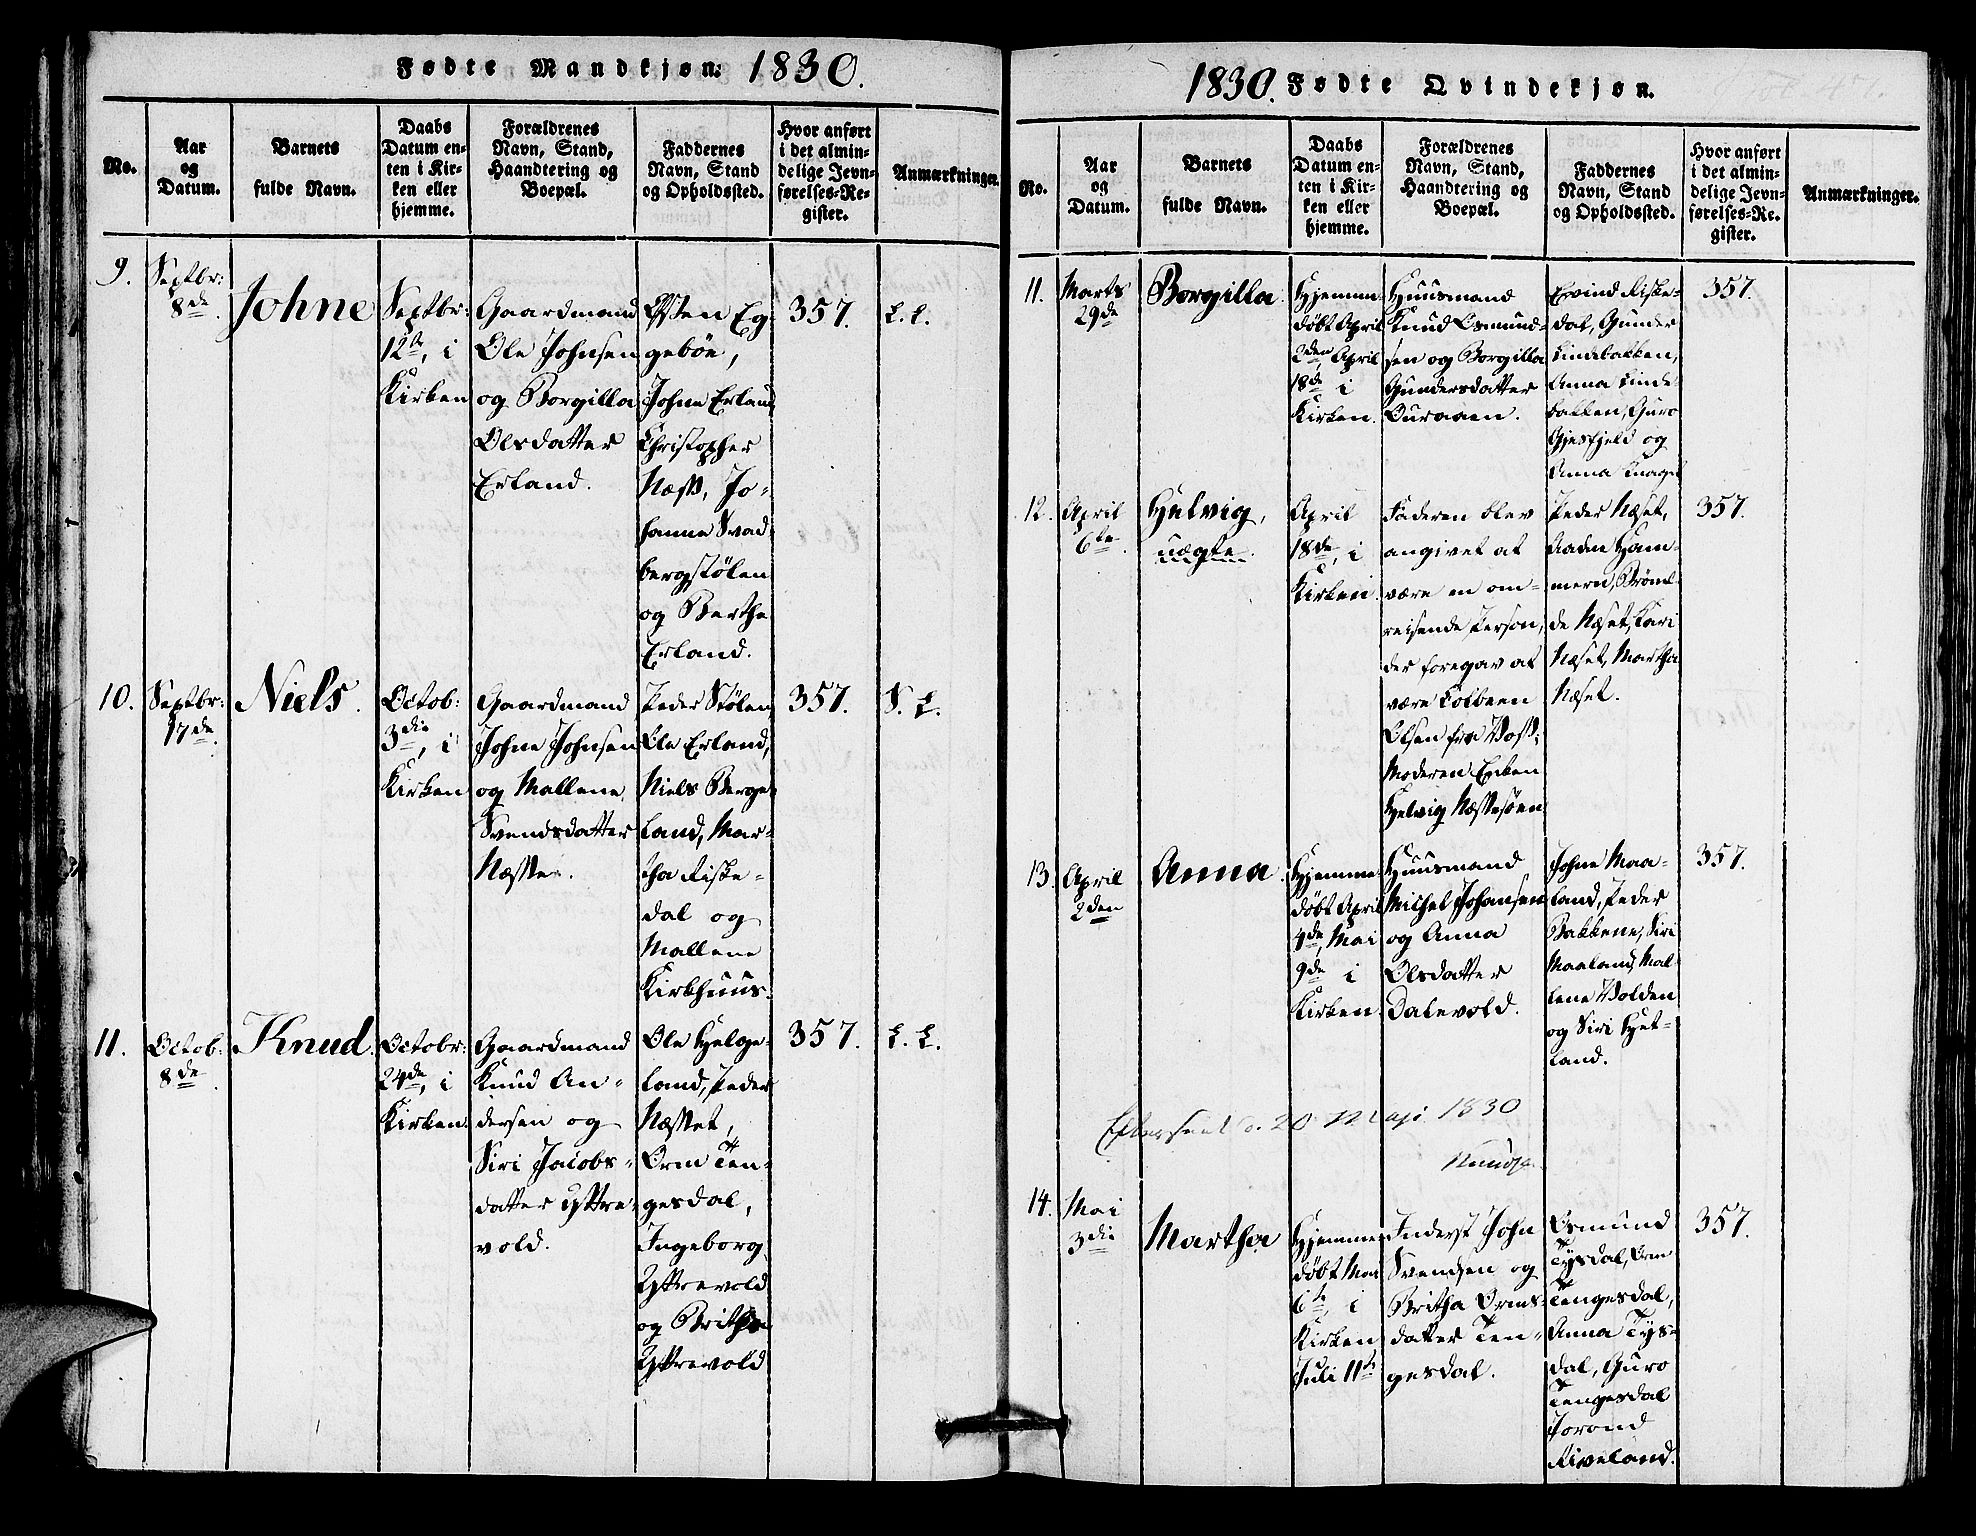 Fødte Mandkjøn: 1830.
No.
Aar
og
Datum.
Barnets
fulde Navn.
Daabs
Datum en-
ten i Kir-
ken eller
hjemme.
Forældrenes
Navn, Stand,
Haandtering og
Boepæl.
Faddernes
Navn, Stand
og Opholdssted.
Hvor anført
i det almin-
delige Jevn-
førelses-Re-
gister.
Anmærkninger.
9.
Septbr:
8de.
Johne
Septbr:
12te, i
Kirken
Gaardmand
Ole Johnsen
og Borgilla
Olsdatter
Erland.
Eg-
gebøe,
Johne Erland,
Christopher
Næss, Jo-
hanne Svad-
bergstølen
og Berthe
Erland.
357.
10.
Septbr:
17de.
Niels.
Octob:
3die, i
Kirken
Gaardmand
Johne Johnsen
og Mallene
Svendsdatter
Peder Stølen,
Ole Erland,
Niels Berge-
land, Mar-
tha Riske-
dal og
Mallene
Kirkhuus.
357.
11.
Octob:
8de.
Knud.
Octobr:
24de, i
Kirken.
Gaardmand
Knud An-
dersen og
Siri Jacobs-
datter Yttre-
vold.
Ole Helge-
land, Peder
Næsset,
Orm Ten-
gesdal,
Ingeborg
Yttrevold
og Britha
Yttrevold
357.
1830. Fødte Qvindekjøn.
No.
Aar
og
Datum.
Barnets
fulde Navn.
Daabs
Datum en-
ten i Kir-
ken eller
hjemme.
Forældrenes
Navn, Stand,
Haandtering og
Boepæl.
Faddernes
Navn, Stand
og Opholdssted.
Hvor anført
i det almin-
delige Jevn-
førelses-Re-
gister.
Anmærkninger.
11.
Marts
29de
Borgilla.
Hjemme-
døbt April
2den, April
18de i
Kirken.
Huusmand
Knud Osmund-
sen og Borgilla
Gundersdatter
Ouraaen.
Eivind Riske-
dal, Gunder
Lindebakken,
Anna Linde-
bakken, Guro
Gjesfjeld og
Anna
12.
April
6te.
Helvig,
uægte.
April
18de, i
Kirken.
Faderen blev
angivet at
være en om-
reisende Person,
der foregav at
være Colbeen
Olsen fra Voss;
Moderen Enken
Helvig
Peder Næset,
Aadne Ham-
mern,
de Næset, Kari
Næset, Martha
Næset.
357.
13.
April
2den
Anna.
Hjemme-
døbt April
4de, Mai
9de i
Kirken.
Huusmand
Michel Johansen
og Anna
Olsdatter
Dalevold.
Johne Maa-
land, Peder
Bakkene, Siri
Maaland, Mal-
lene Volden
og Siri Het-
land.
357.
Efterseet d. 20 Maji 1830
14.
Mai
3die
Martha
Hjemme-
døbt Mai
6te, i
Kirken
Juli 11te
Inderst John
Svendsen og
Britha Orms-
datter Ten-
gesdal.
Osmund
Tysdal, Orm
Tengesdal,
Anna Tys-
dal, Guro
Tengesdal
Jorond
Riveland.
357.